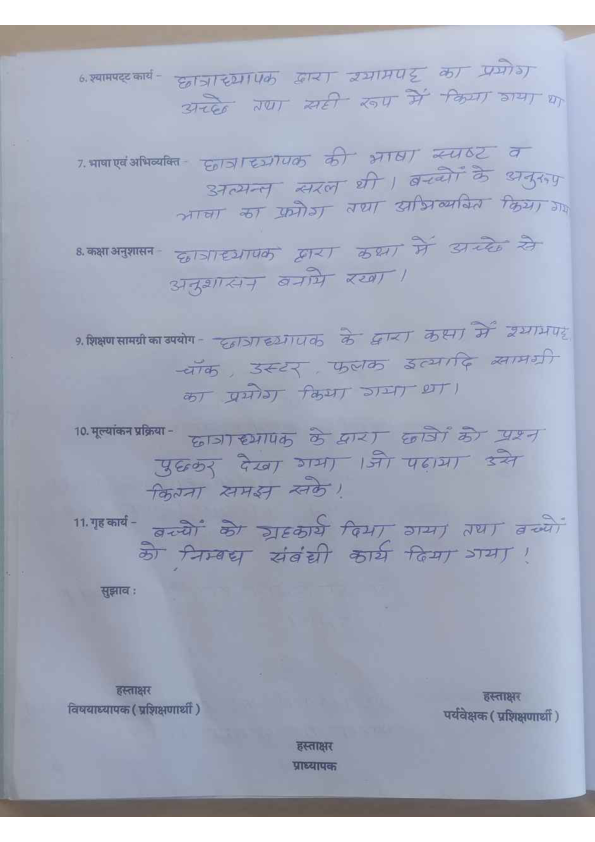 6. श्यामपट्ट कार्य - छात्राध्यापक द्वारा श्यामपट्ट का प्रयोग
अच्छे तथा सही रूप में किया गया था
7. भाषा एवं अभिव्यक्ति - छात्राध्यापक की भाषा स्पष्ट व
अत्यन्त सरल थी । बच्चों के अनुरूप
भाषा का प्रयोग तथा अभिव्यक्ति किया गया
8. कक्षा अनुशासन - छात्राध्यापक द्वारा कक्षा में अच्छे से
अनुशासन बनाये रखा ।
9. शिक्षण सामग्री का उपयोग - छात्राध्यापक के द्वारा कक्षा में श्यामपट्ट,
चॉक, डस्टर, फलक इत्यादि सामग्री
का प्रयोग किया गया था।
10. मूल्यांकन प्रक्रिया - छात्राध्यापक के द्वारा छात्रों को प्रश्न
पुछकर देखा गया ।जो पढ़ाया उसे
कितना समझ सके।
11. गृह कार्य - बच्चों को ग्रहकार्य दिया गया तथा बच्चों
को निम्बध संबंधी कार्य दिया गया ।
सुझाव :
हस्ताक्षर
विषयाध्यापक ( प्रशिक्षणार्थी )
हस्ताक्षर
पर्यवेक्षक ( प्रशिक्षणार्थी )
हस्ताक्षर
प्राध्यापक